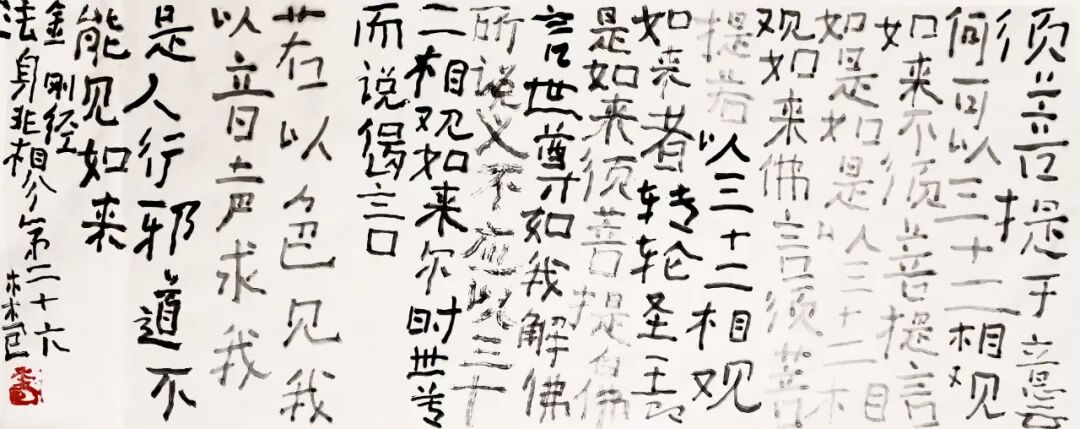 须菩提于意云
何可以三十二相观
如来不须菩提言
如是如是以三十二相
观如来佛言须菩
提若以三十二相观
如来者转轮圣王即
是如来须菩提白佛
言世尊如我解佛
所说义不应以三十
二相观如来尔时世尊
而说偈言
若以色见我
以音声求我
是人行邪道不
能见如来
金刚经
法身非相分第二十六